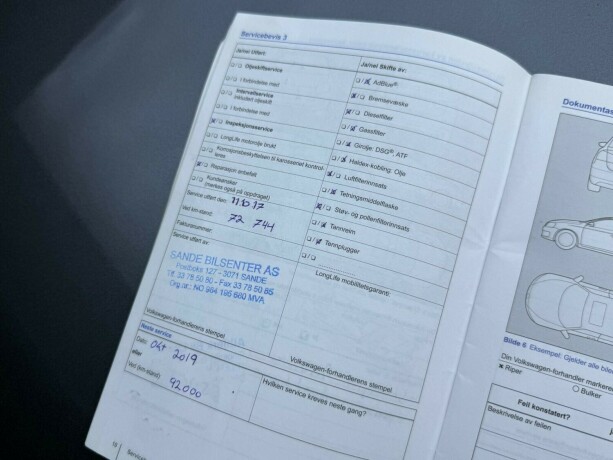 Servicebevis 3
Ja/nei Utført:
Oljeskiftservice
I forbindelse med
Intervallservice
inkludert oljeskift
I forbindelse med
Inspeksjonsservice
LongLife motorolje brukt
Korrosjonsbeskyttelsen til karosseriet kontrol-
leres
Reparasjon anbefalt
Kundeønsker
(merkes også på oppdraget)
Service utført den: 11.10.17
Ved km-stand: 72 744
Fakturanummer:
Service utført av:
SANDE BILSENTER AS
Postboks 127 - 3071 SANDE
Tlf. 33 78 50 80 - Fax 33 78 50 85
Volkswagen-forhandlerens stempel
Neste service
Dato: Okt 2019
eller
Ved (km-stand): 92000
Ja/nei Skifte av:
AdBlue®
Bremsevæske
Dieselfilter
Gassfilter
Girolje: DSG®, ATF
Haldex-kobling: Olje
Luftfilterinnsats
Tetningsmiddelflaske
Støv- og pollenfilterinnsats
Tannreim
Tennplugger
LongLife mobilitetsgaranti
Volkswagen-forhandlerens stempel
Hvilken service kreves neste gang?
Dokumentas
Bilde 6 Eksempel: Gjelder alle bile
Din Volkswagen-forhandler markere
Riper
Bulker
Feil konstatert?
Beskrivelse av feilen